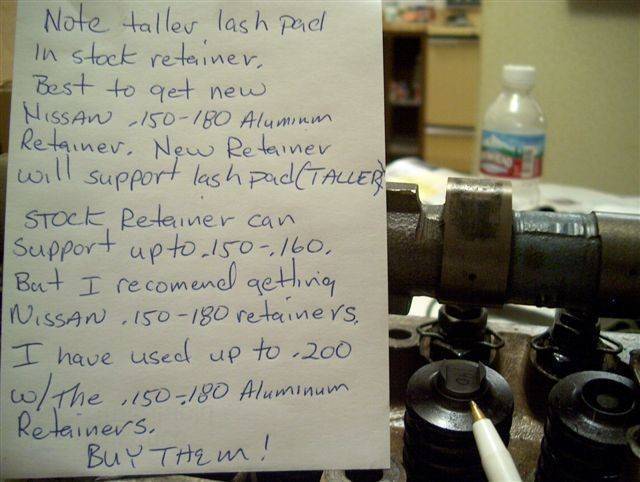 Note taller lash pad
In stock retainer.
Best to get new
NISSAN .150-180 Aluminum
Retainer. New Retainer
will support lash pad (TALLER)
STOCK Retainer can
Support up to .150-.160.
But I recomend getting
NISSAN .150-180 retainers.
I have used up to .200
w/The .150-.180 Aluminum
Retainers.
BUY THEM!